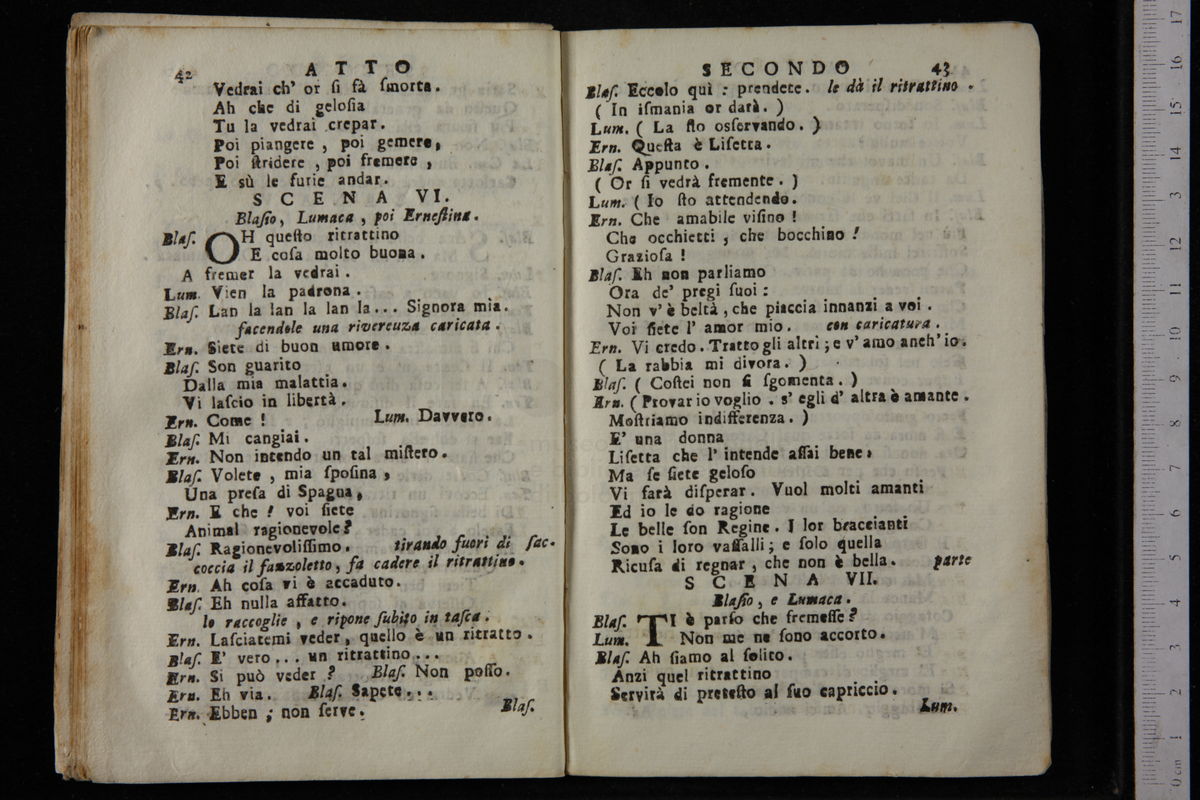 42 ATTO
Vedrai ch' or ſi fà ſmorta.
Ah che di geloſia
Tu la vedrai crepar.
Poi piangere , poi gemere,
Poi ſtridere , poi fremere ,
E sù le furie andar.
SCENA VI.
Blaſio, Lumaca , poi Erneſtina.
Blaſ. OH queſto ritrattino
E coſa molto buona.
A fremer la vedrai.
Lum. Vien la padrona.
Blaſ. Lan la lan la lan la... Signora mia.
facendole una riverenza caricata.
Ern. Siete di buon umore.
Blaſ. Son guarito
Dalla mia malattia.
Vi laſcio in libertà.
Ern. Come ! Lum. Davvero.
Blaſ. Mi cangiai.
Ern. Non intendo un tal miſtero.
Blaſ. Volete , mia ſpoſina ,
Una preſa di Spagna,
Ern. E che ! voi ſiete
Animal ragionevole?
Blaſ. Ragionevoliſſimo. tirando fuori di ſac-
coccia il fazzoletto, fa cadere il ritrattino.
Ern. Ah coſa vi è accaduto.
Blaſ. Eh nulla affatto.
lo raccoglie , e ripone ſubito in taſca.
Ern. Laſciatemi veder, quello è un ritratto.
Blaſ. E' vero... un ritrattino...
Ern. Si può veder ? Blaſ. Non poſſo.
Ern. Eh via. Blaſ. Sapete...
Ern. Ebben ; non ſerve.
Blaſ.
SECONDO 43
Blaſ. Eccolo quì : prendete. le dà il ritrattino.
( In iſmania or darà. )
Lum. ( La ſto oſſervando. )
Ern. Queſta è Liſetta.
Blaſ. Appunto.
( Or ſi vedrà fremente. )
Lum. ( Io ſto attendendo.
Ern. Che amabile viſino !
Che occhietti , che bocchino !
Grazioſa !
Blaſ. Eh non parliamo
Ora de' pregi ſuoi :
Non v' è beltà , che piaccia innanzi a voi.
Voi ſiete l' amor mio. con caricatura.
Ern. Vi credo. Tratto gli altri ; e v' amo anch' io.
( La rabbia mi divora. )
Blaſ. ( Coſtei non ſi ſgomenta. )
Ern. ( Provar io voglio. s' egli d' altra è amante.
Moſtriamo indifferenza. )
E' una donna
Liſetta che l' intende aſſai bene,
Ma ſe ſiete geloſo
Vi farà diſperar. Vuol molti amanti
Ed io le do ragione
Le belle ſon Regine. I lor braccianti
Sono i loro vaſſalli ; e ſolo quella
Ricuſa di regnar , che non è bella. parte
SCENA VII.
Blaſio , e Lumaca.
Blaſ. TI è parſo che fremeſſe?
Lum. Non me ne ſono accorto.
Blaſ. Ah ſiamo al ſolito.
Anzi quel ritrattino
Servirà di preteſto al ſuo capriccio.
Lum.